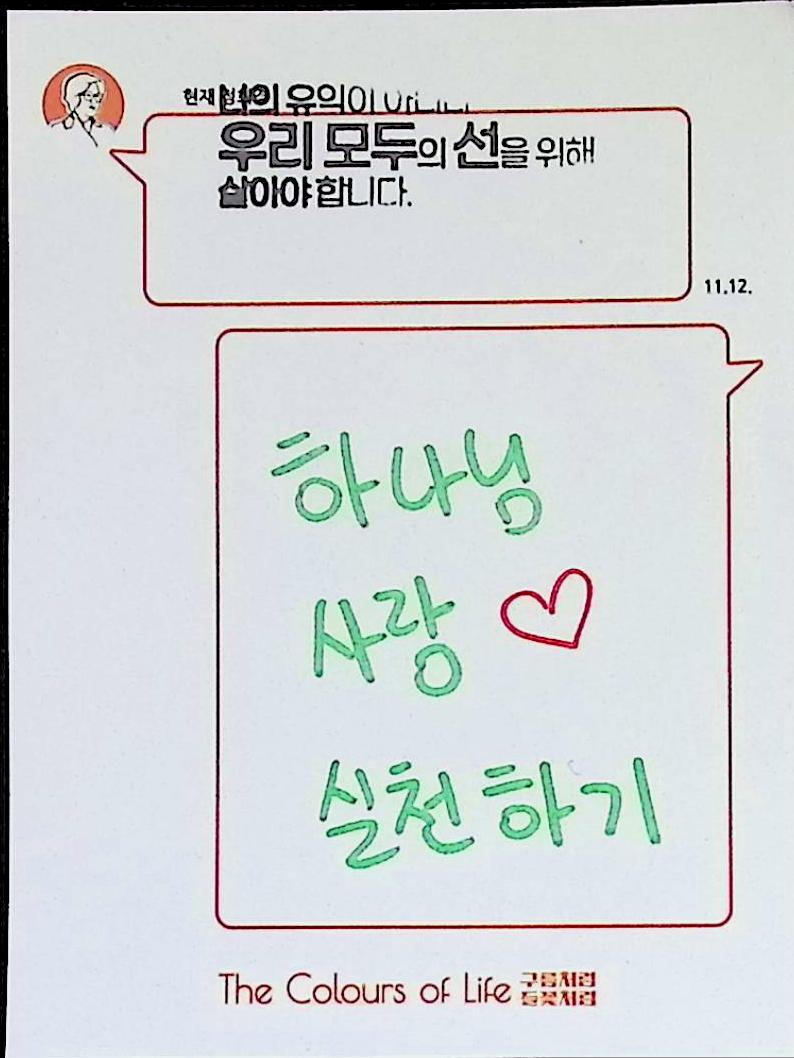 나의 유익이 아니라
우리 모두의 선을 위해
살아야 합니다.
11.12.
하나님
사랑
실천하기
The Colours of Life 구름처럼
들꽃처럼